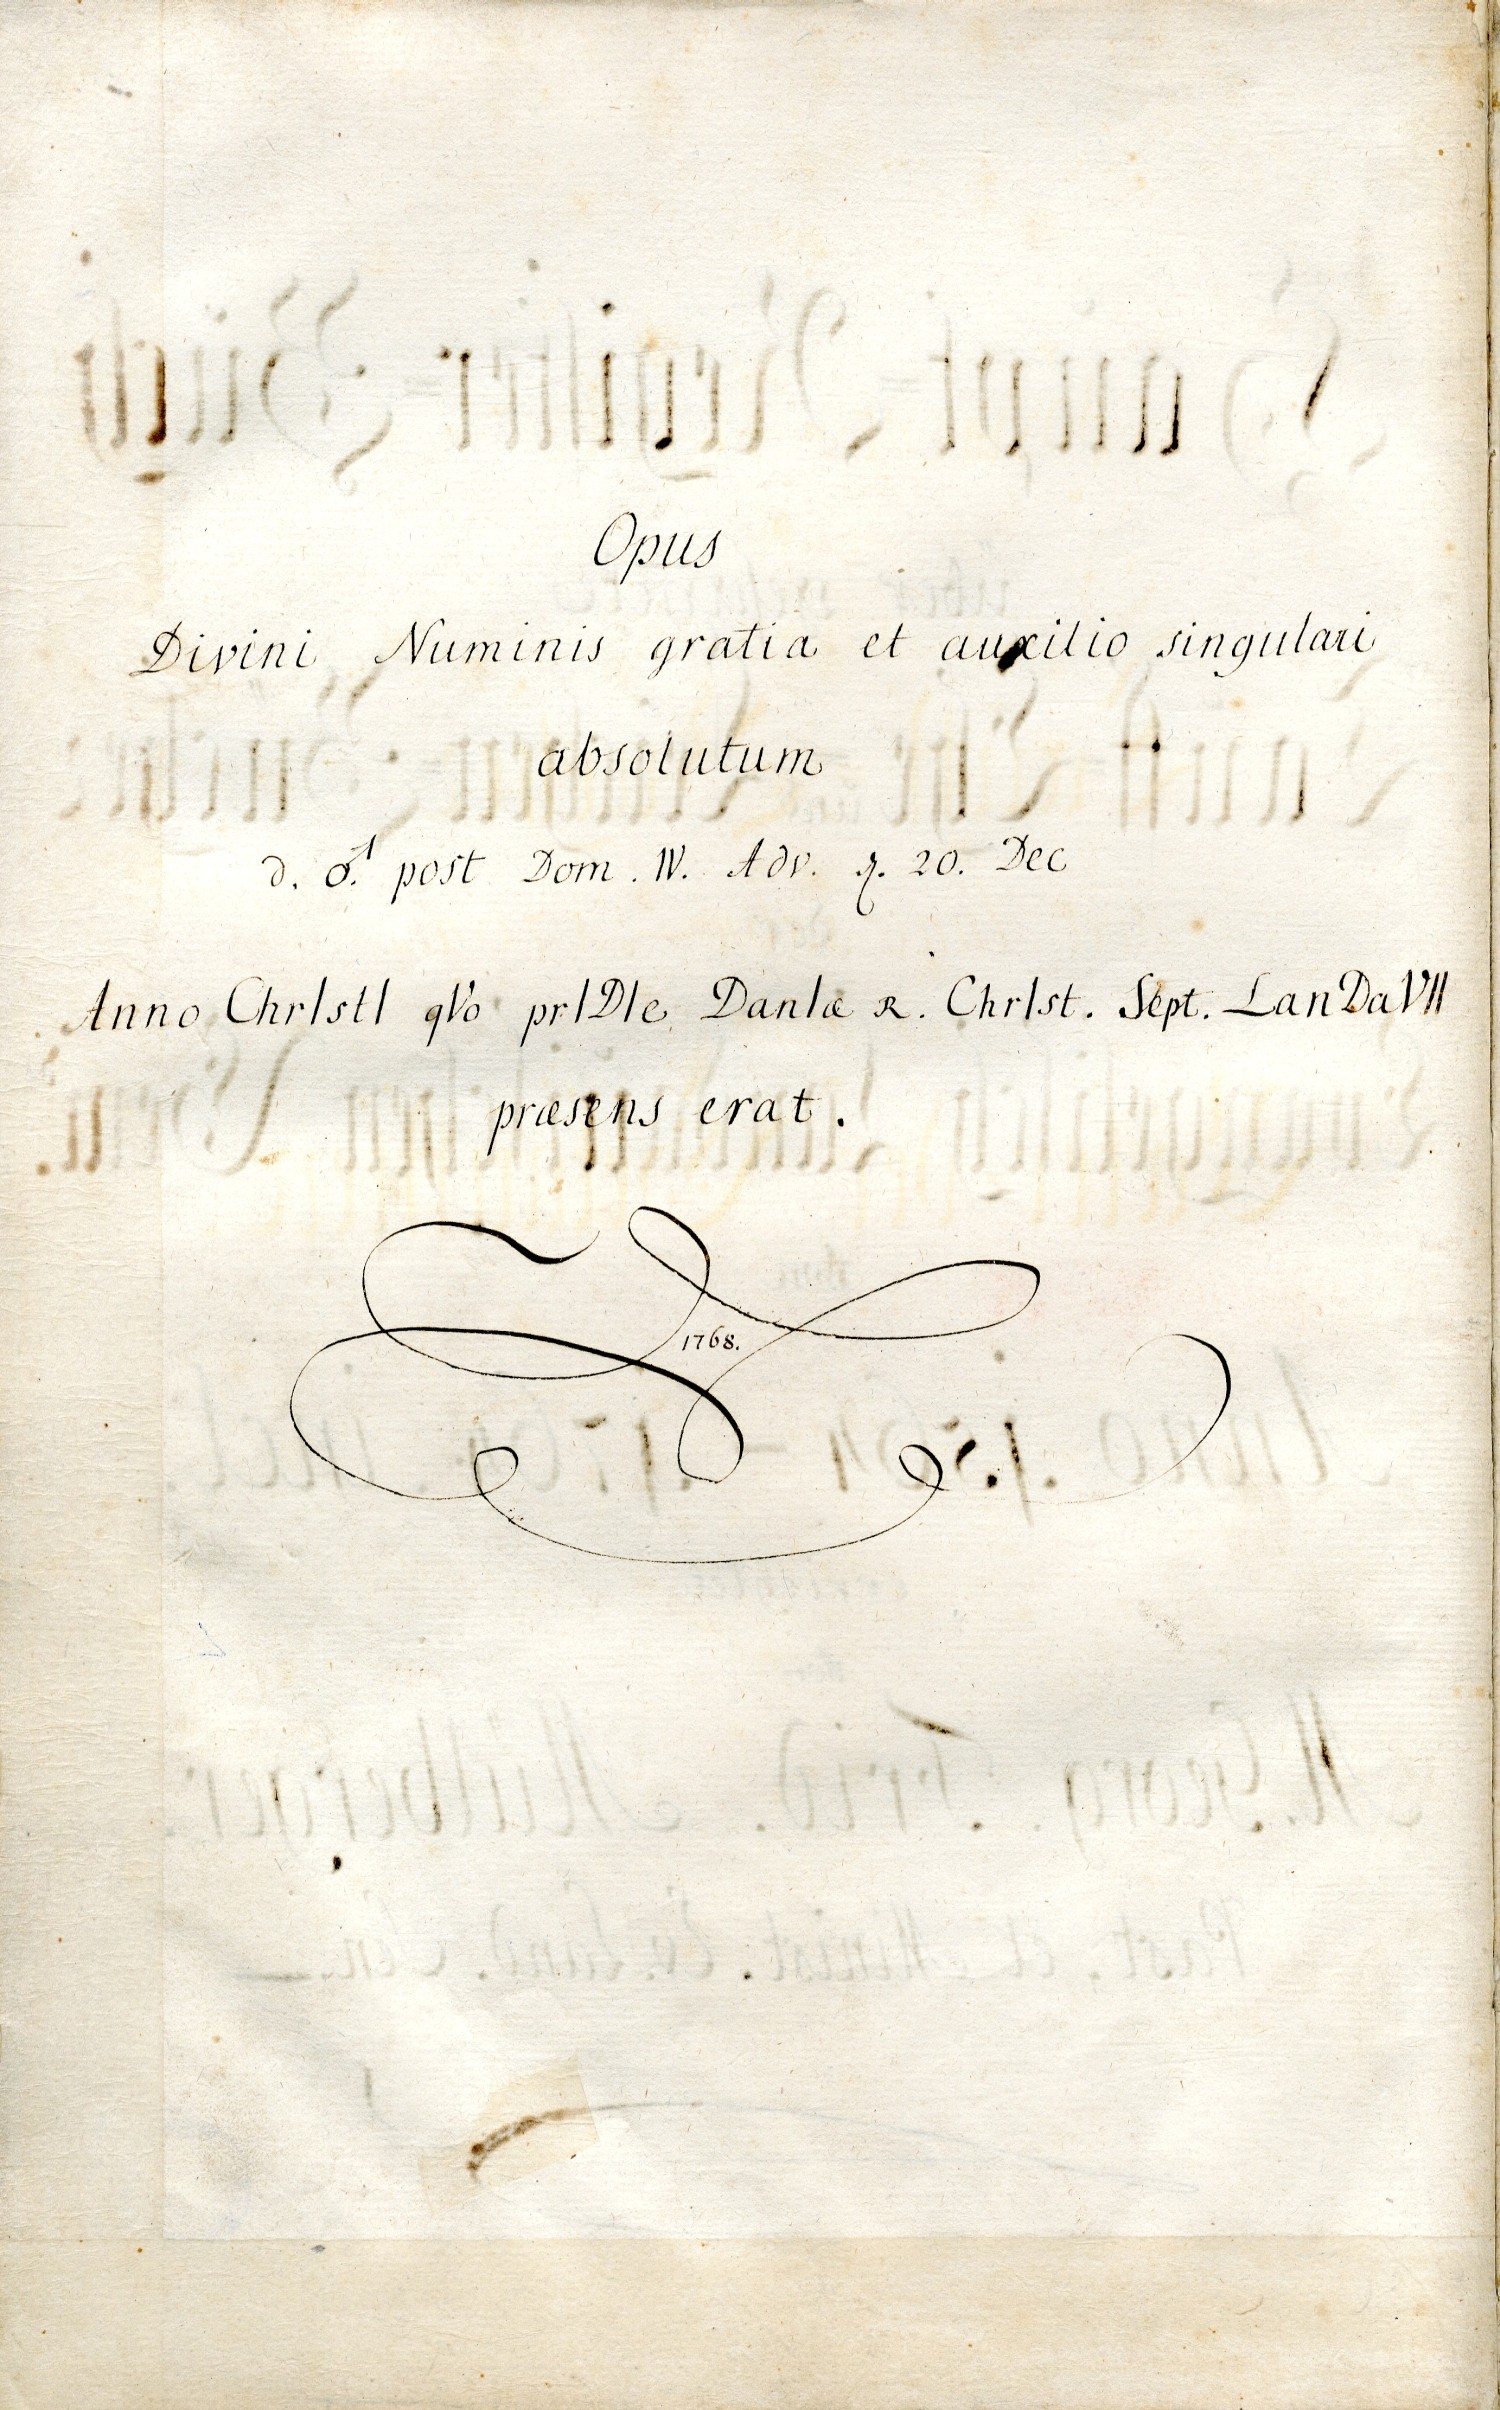 Opus
Divini Numinis gratia et auxilio singulari
absolutum
d. ♂. post Dom. IV. Adv. 20. Dec
Anno ChrIstI qVo prIDIe DanIæ R. ChrIst. Sept. LanDaVII
præsens erat.
1768.